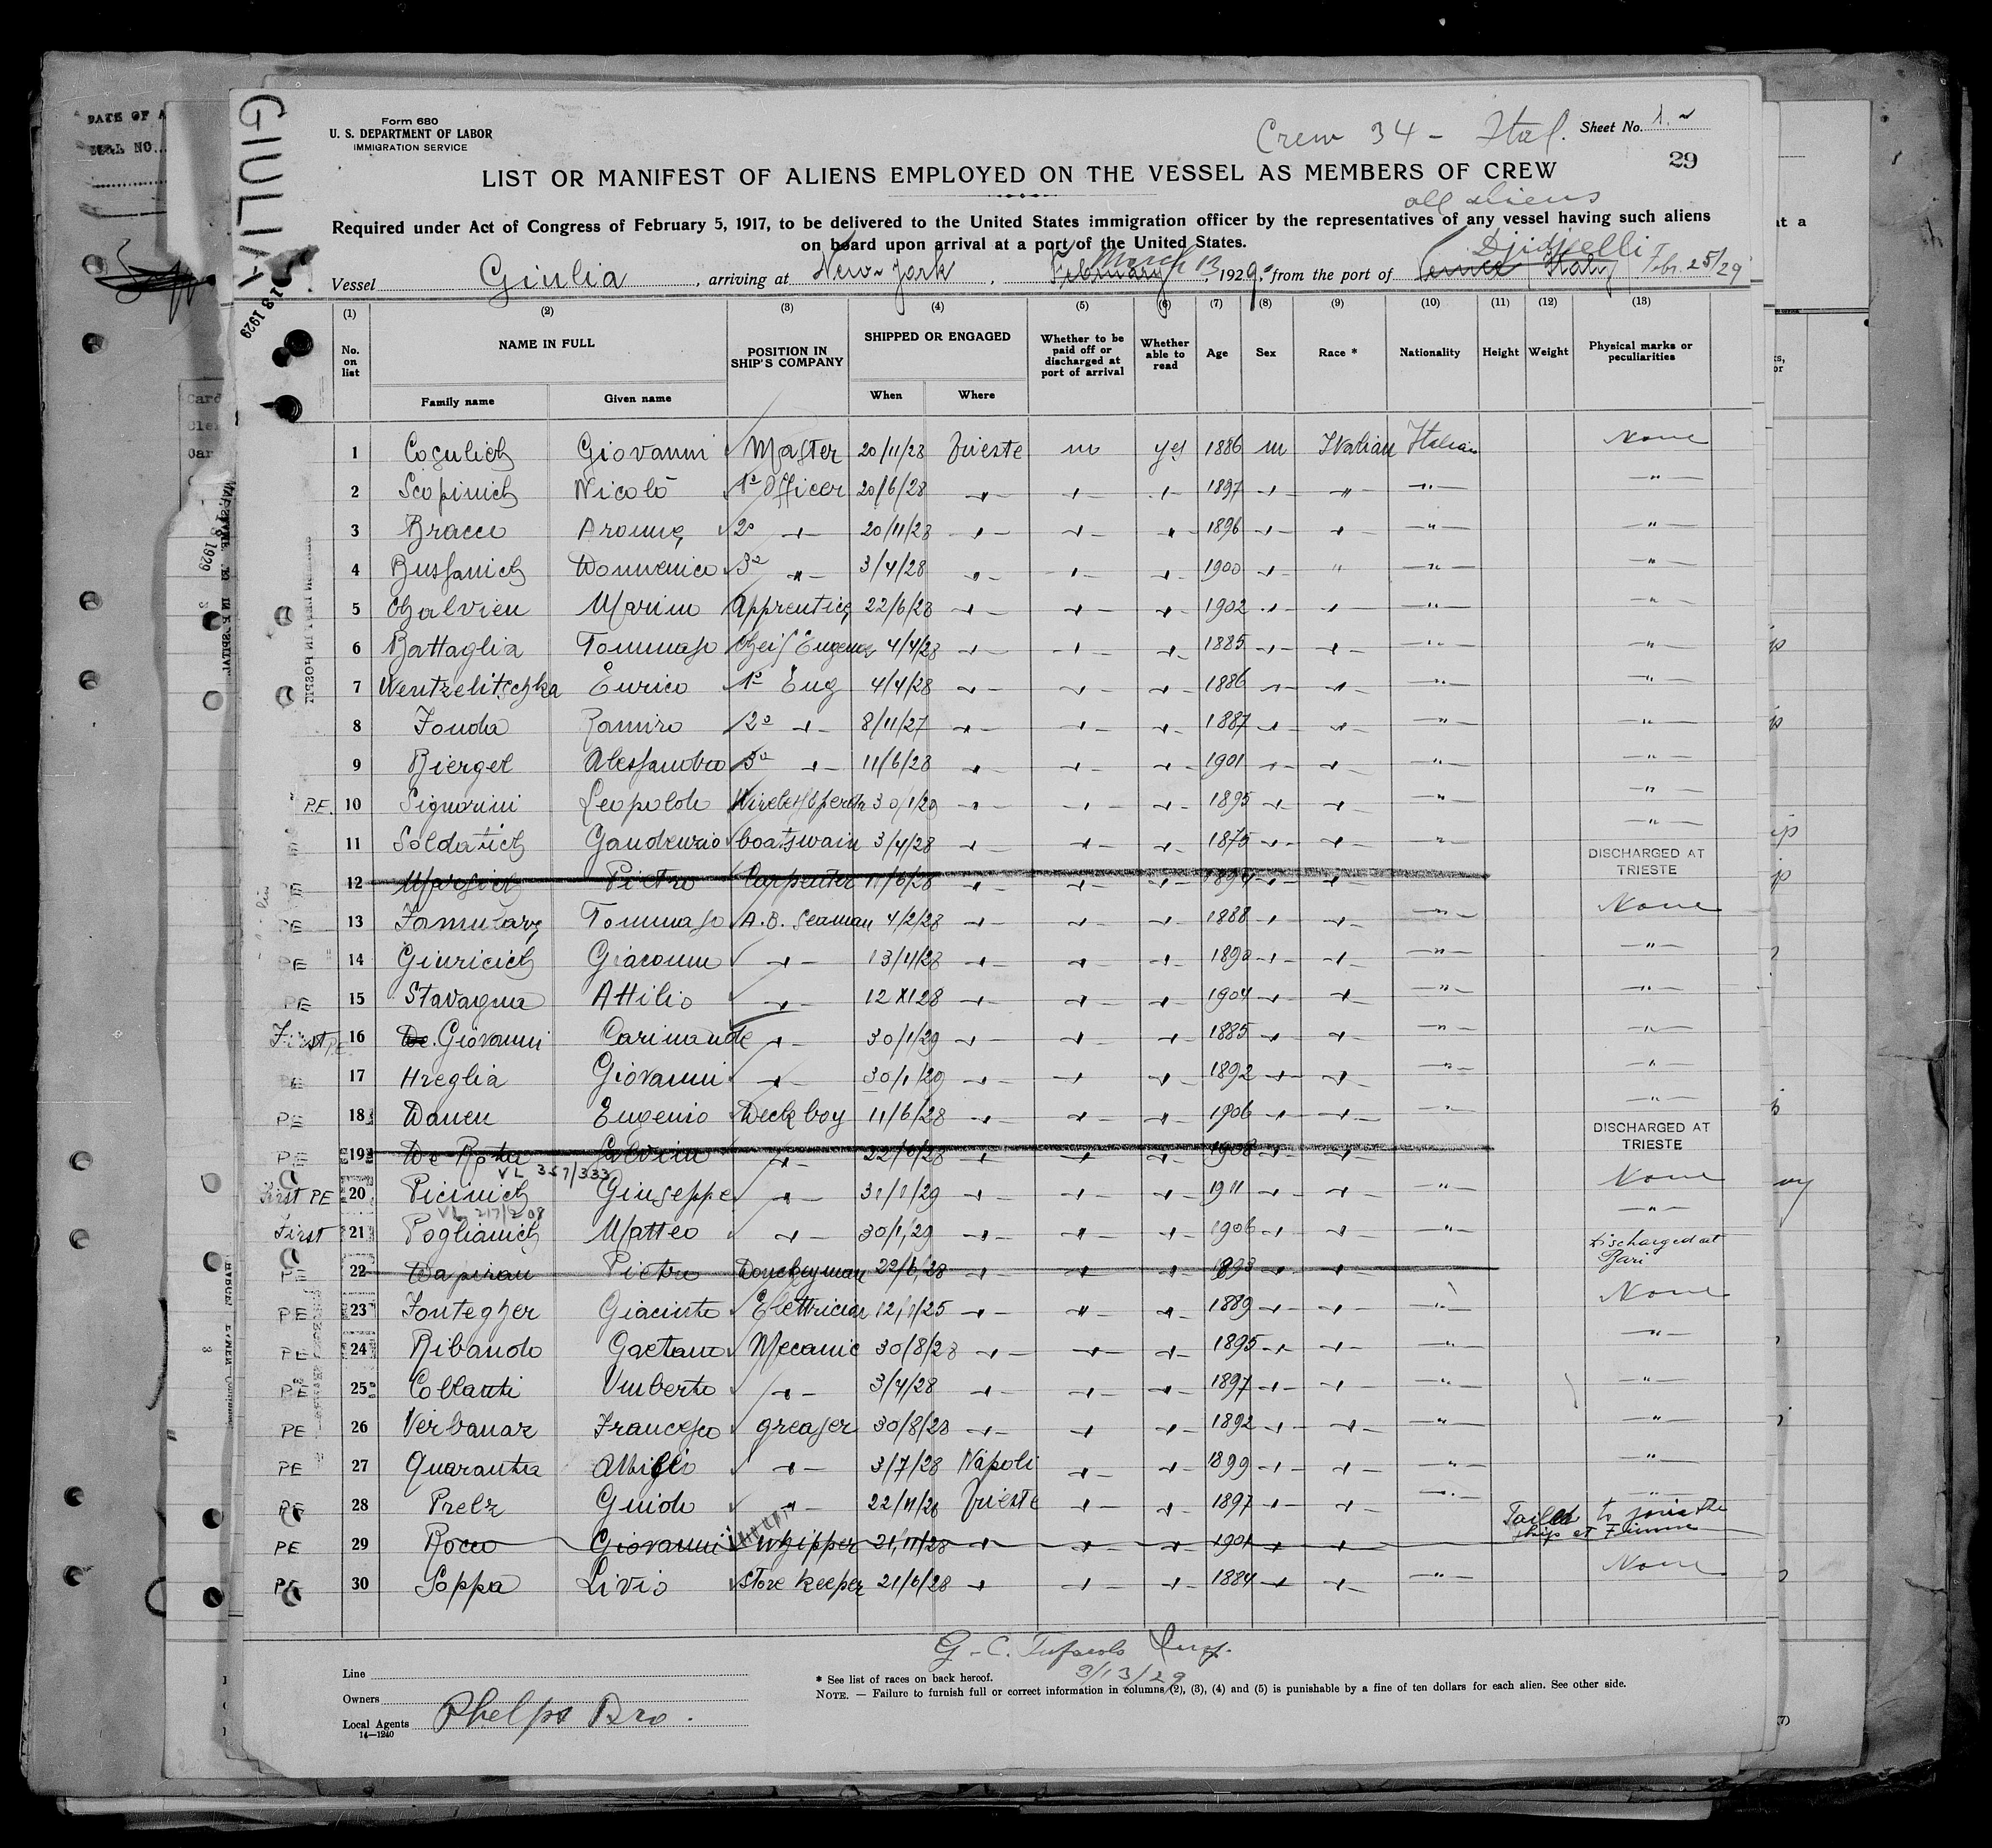 GIULIA
Form 680
U. S. DEPARTMENT OF LABOR
IMMIGRATION SERVICE
Crew 34 - Ital.
Sheet No. 1.
29
LIST OR MANIFEST OF ALIENS EMPLOYED ON THE VESSEL AS MEMBERS OF CREW
all aliens
Required under Act of Congress of February 5, 1917, to be delivered to the United States immigration officer by the representatives of any vessel having such aliens
on board upon arrival at a port of the United States.
Vessel Giulia, arriving at New-York, February March 13, 1929, from the port of Venice Italy Djidjelli Febr. 25/29
(1) (2) (3) (4) (5) (6) (7) (8) (9) (10) (11) (12) (13)
No. on list NAME IN FULL POSITION IN SHIP'S COMPANY SHIPPED OR ENGAGED Whether to be paid off or discharged at port of arrival Whether able to read Age Sex Race * Nationality Height Weight Physical marks or peculiarities
Family name Given name When Where
1 Cosulich Giovanni Master 20/11/28 Trieste no yes 1886 m Italian Italian None
2 Scopinich Nicolò 1º Officer 20/6/28 " " " 1897 " " " "
3 Bracco 2º " 20/11/28 " " " 1896 " " " "
4 Bussanich Domenico 3º " 3/4/28 " " " 1900 " " " "
5 Chalvien Marino Apprentice 22/6/28 " " " 1902 " " " "
6 Battaglia Tommaso Cheif Engeneer 4/4/28 " " " 1885 " " " "
7 Wentzelitschka Enrico 1º Eng 4/4/28 " " " 1886 " " " "
8 Fonda Ramiro 2º " 8/11/27 " " " 1887 " " " "
9 Alessandro 3º " 11/6/28 " " " 1901 " " " "
P.E. 10 Signorini Leopoldo 30/1/29 " " " 1895 " " " "
11 Soldatich Gaudenzio boatswain 3/4/28 " " " 1875 " " " "
PE 12 Pietro Carpenter 11/6/28 " " " 1894 " " DISCHARGED AT TRIESTE
PE 13 Famulare Tommaso A.B. Seaman 4/2/28 " " " 1888 " " " None
PE 14 Giuricich Giacomo " 13/4/28 " " " 1890 " " " "
PE 15 Stavagna Attilio " 12 XI 28 " " " 1904 " " " "
First PE 16 De. Giovanni " 30/1/29 " " " 1885 " " " "
PE 17 Hreglia Giovanni " 30/1/29 " " " 1892 " " " "
PE 18 Daneu Eugenio Deck boy 11/6/28 " " " 1906 " " " "
PE 19 De Rota " 22/6/28 " " " 1908 " " DISCHARGED AT TRIESTE
VL 357/333
First PE 20 Picinich Giuseppe " 31/1/29 " " " 1911 " " " None
VL 217/208
First 21 Poglianich Matteo " 30/1/29 " " " 1906 " " " "
PE 22 Dapiran Pietro Donckeyman 22/6/28 " " " 1893 " " Discharged at Bari
PE 23 Fontegher Giacinto Elettrician 12/1/25 " " " 1889 " " " None
PE 24 Ribaudo Gaetano Mecanic 30/8/28 " " " 1895 " " " "
PE 25 Collanti Umberto " 3/4/28 " " " 1897 " " " "
PE 26 Verbanaz Francesco greaser 30/8/28 " " " 1892 " " " "
PE 27 Quaranta " 3/7/28 Napoli " " 1899 " " " "
PE 28 Prelz Guido " 22/11/28 Trieste " " 1897 " " " "
PE 29 Rocco Giovanni Whipper 21/11/28 " " " 1901 " " Failed to join the ship at Fiume
PE 30 Soppa Livio Store Keeper 21/6/28 " " " 1884 " " " None
3/13/29
Line
* See list of races on back hereof.
Owners
NOTE. — Failure to furnish full or correct information in columns (2), (3), (4) and (5) is punishable by a fine of ten dollars for each alien. See other side.
Local Agents Phelps Bro.
14—1240